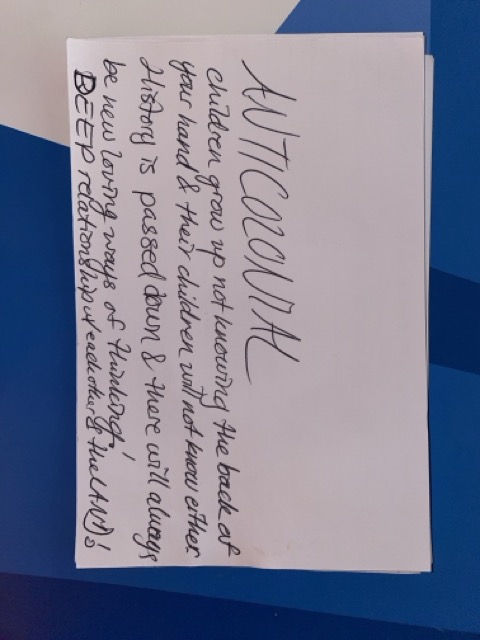 ANTICOLONIAL
children grow up not knowing the back of
your hand & their children will not know either.
History is passed down & there will always
be new loving ways of thinking!
DEEP relationship w each other & the LAND!